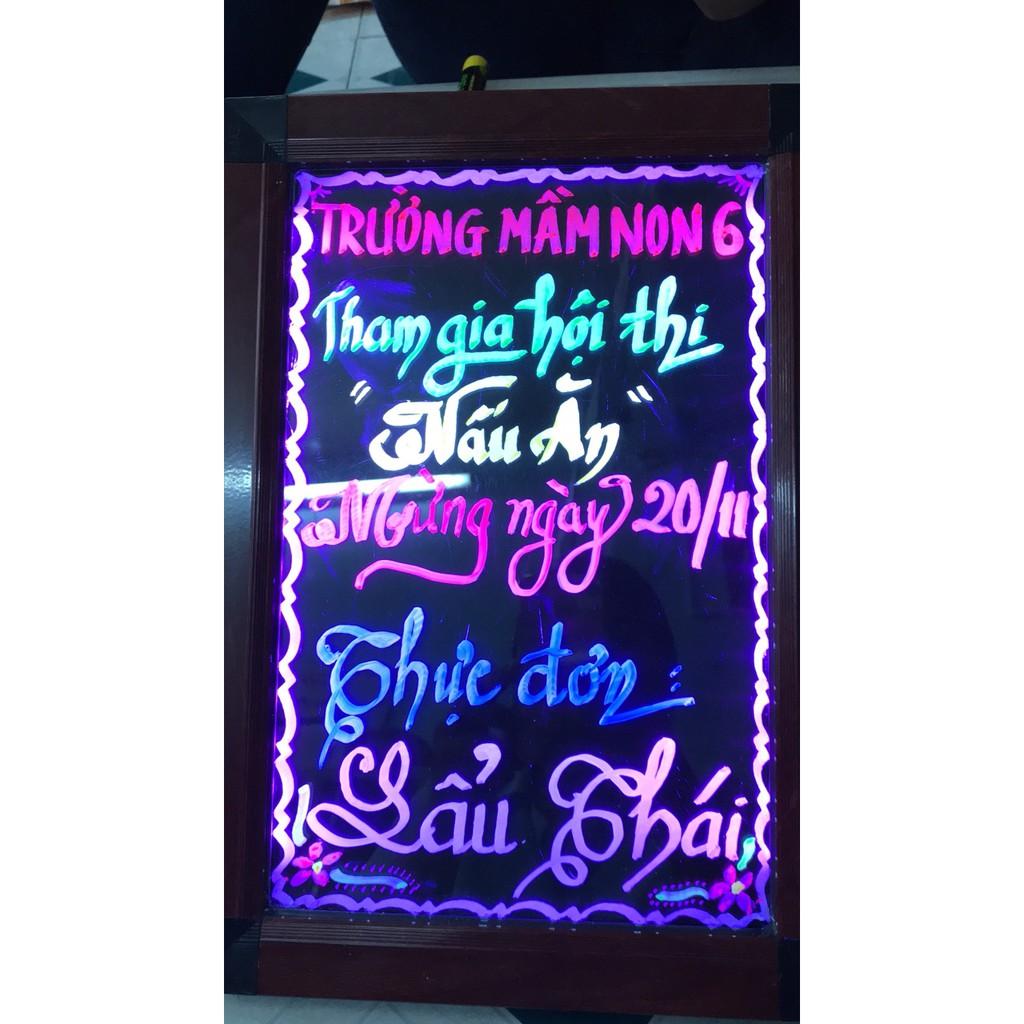 TRƯỜNG MẦM NON 6
Tham gia hội thi
"Nấu Ăn"
Mừng ngày 20/11
Thực đơn :
Lẩu Thái